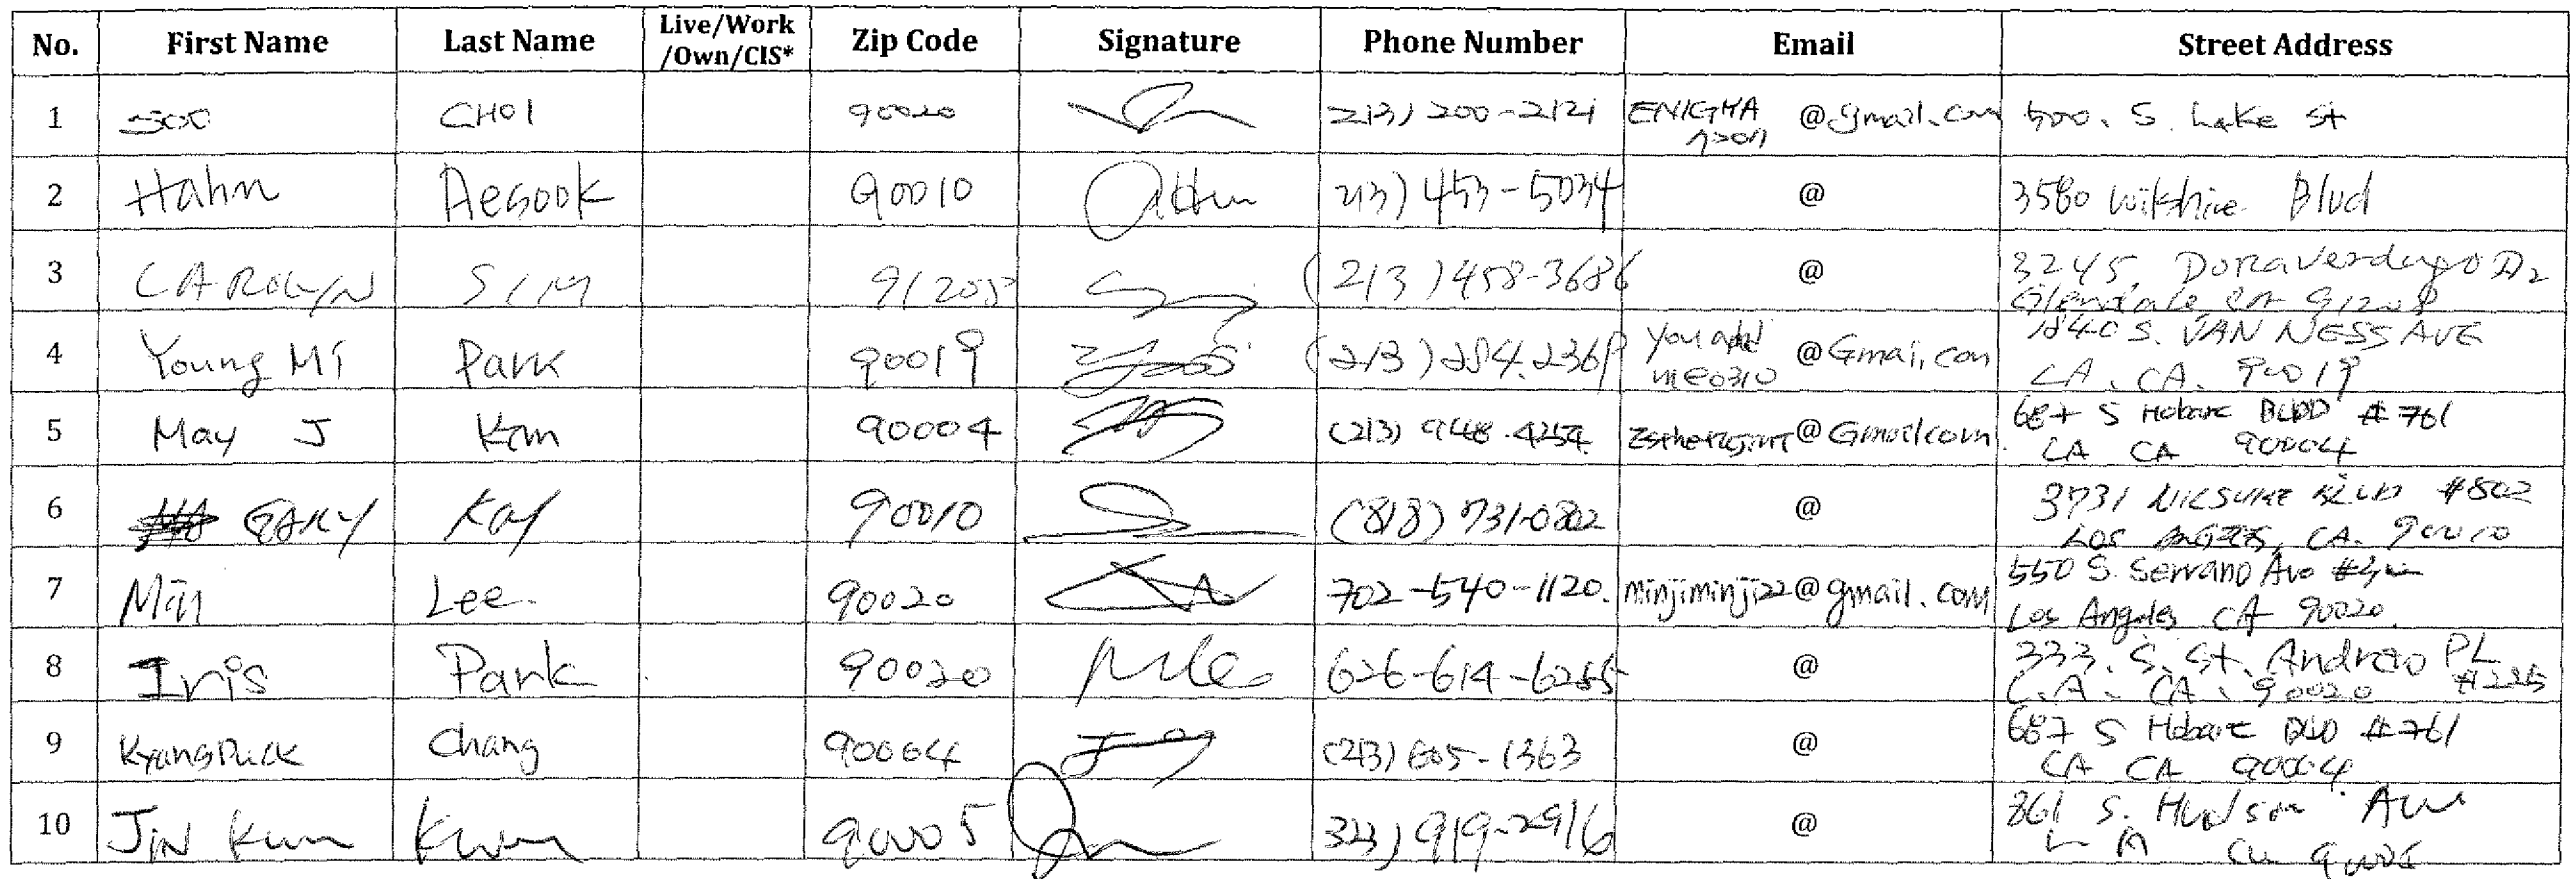 No. First Name Last Name Live/Work /Own/CIS* Zip Code Signature Phone Number Email Street Address
1 Soo CHOI 90020 213) 200-2121 ENIGMA @gmail.com 500. S. Lake St
2 Hahn Aesook 90010 213) 453-5034 @ 3580 Wilshire Blvd
3 CAROLYN SIM 91208 (213) 458-3686 @ 3245
Glendale CA 91208
4 Young Mi Park 90019 (213) 284.2369 you add @Gmai.com 1840 S. VAN NESS AVE
me0310 LA. CA. 90019
5 May J Kim 90004 (213) 948.4254 @Gmail.com 687 S Hobart BLVD #761
LA CA 90004
6 GARY KAY 90010 (818) 731-0802 @ 3731 #802
Los Angeles, CA. 90010
7 Min Lee 90020 702-540-1120. minjiminji22@gmail.com 550 S. Serrano Ave
Los Angeles CA 90020.
8 Iris Park 90020 626-614-6265 @ 333. S. St. Andrews PL
L.A. CA. 90020 #225
9 Chang 90004 (213) 605-1363 @ 687 S Hobart BLVD #761
CA CA 90004
10 JIN Kun 90005 323) 919-2916 @ 861 S. Hudson Ave
L A Ca 90005